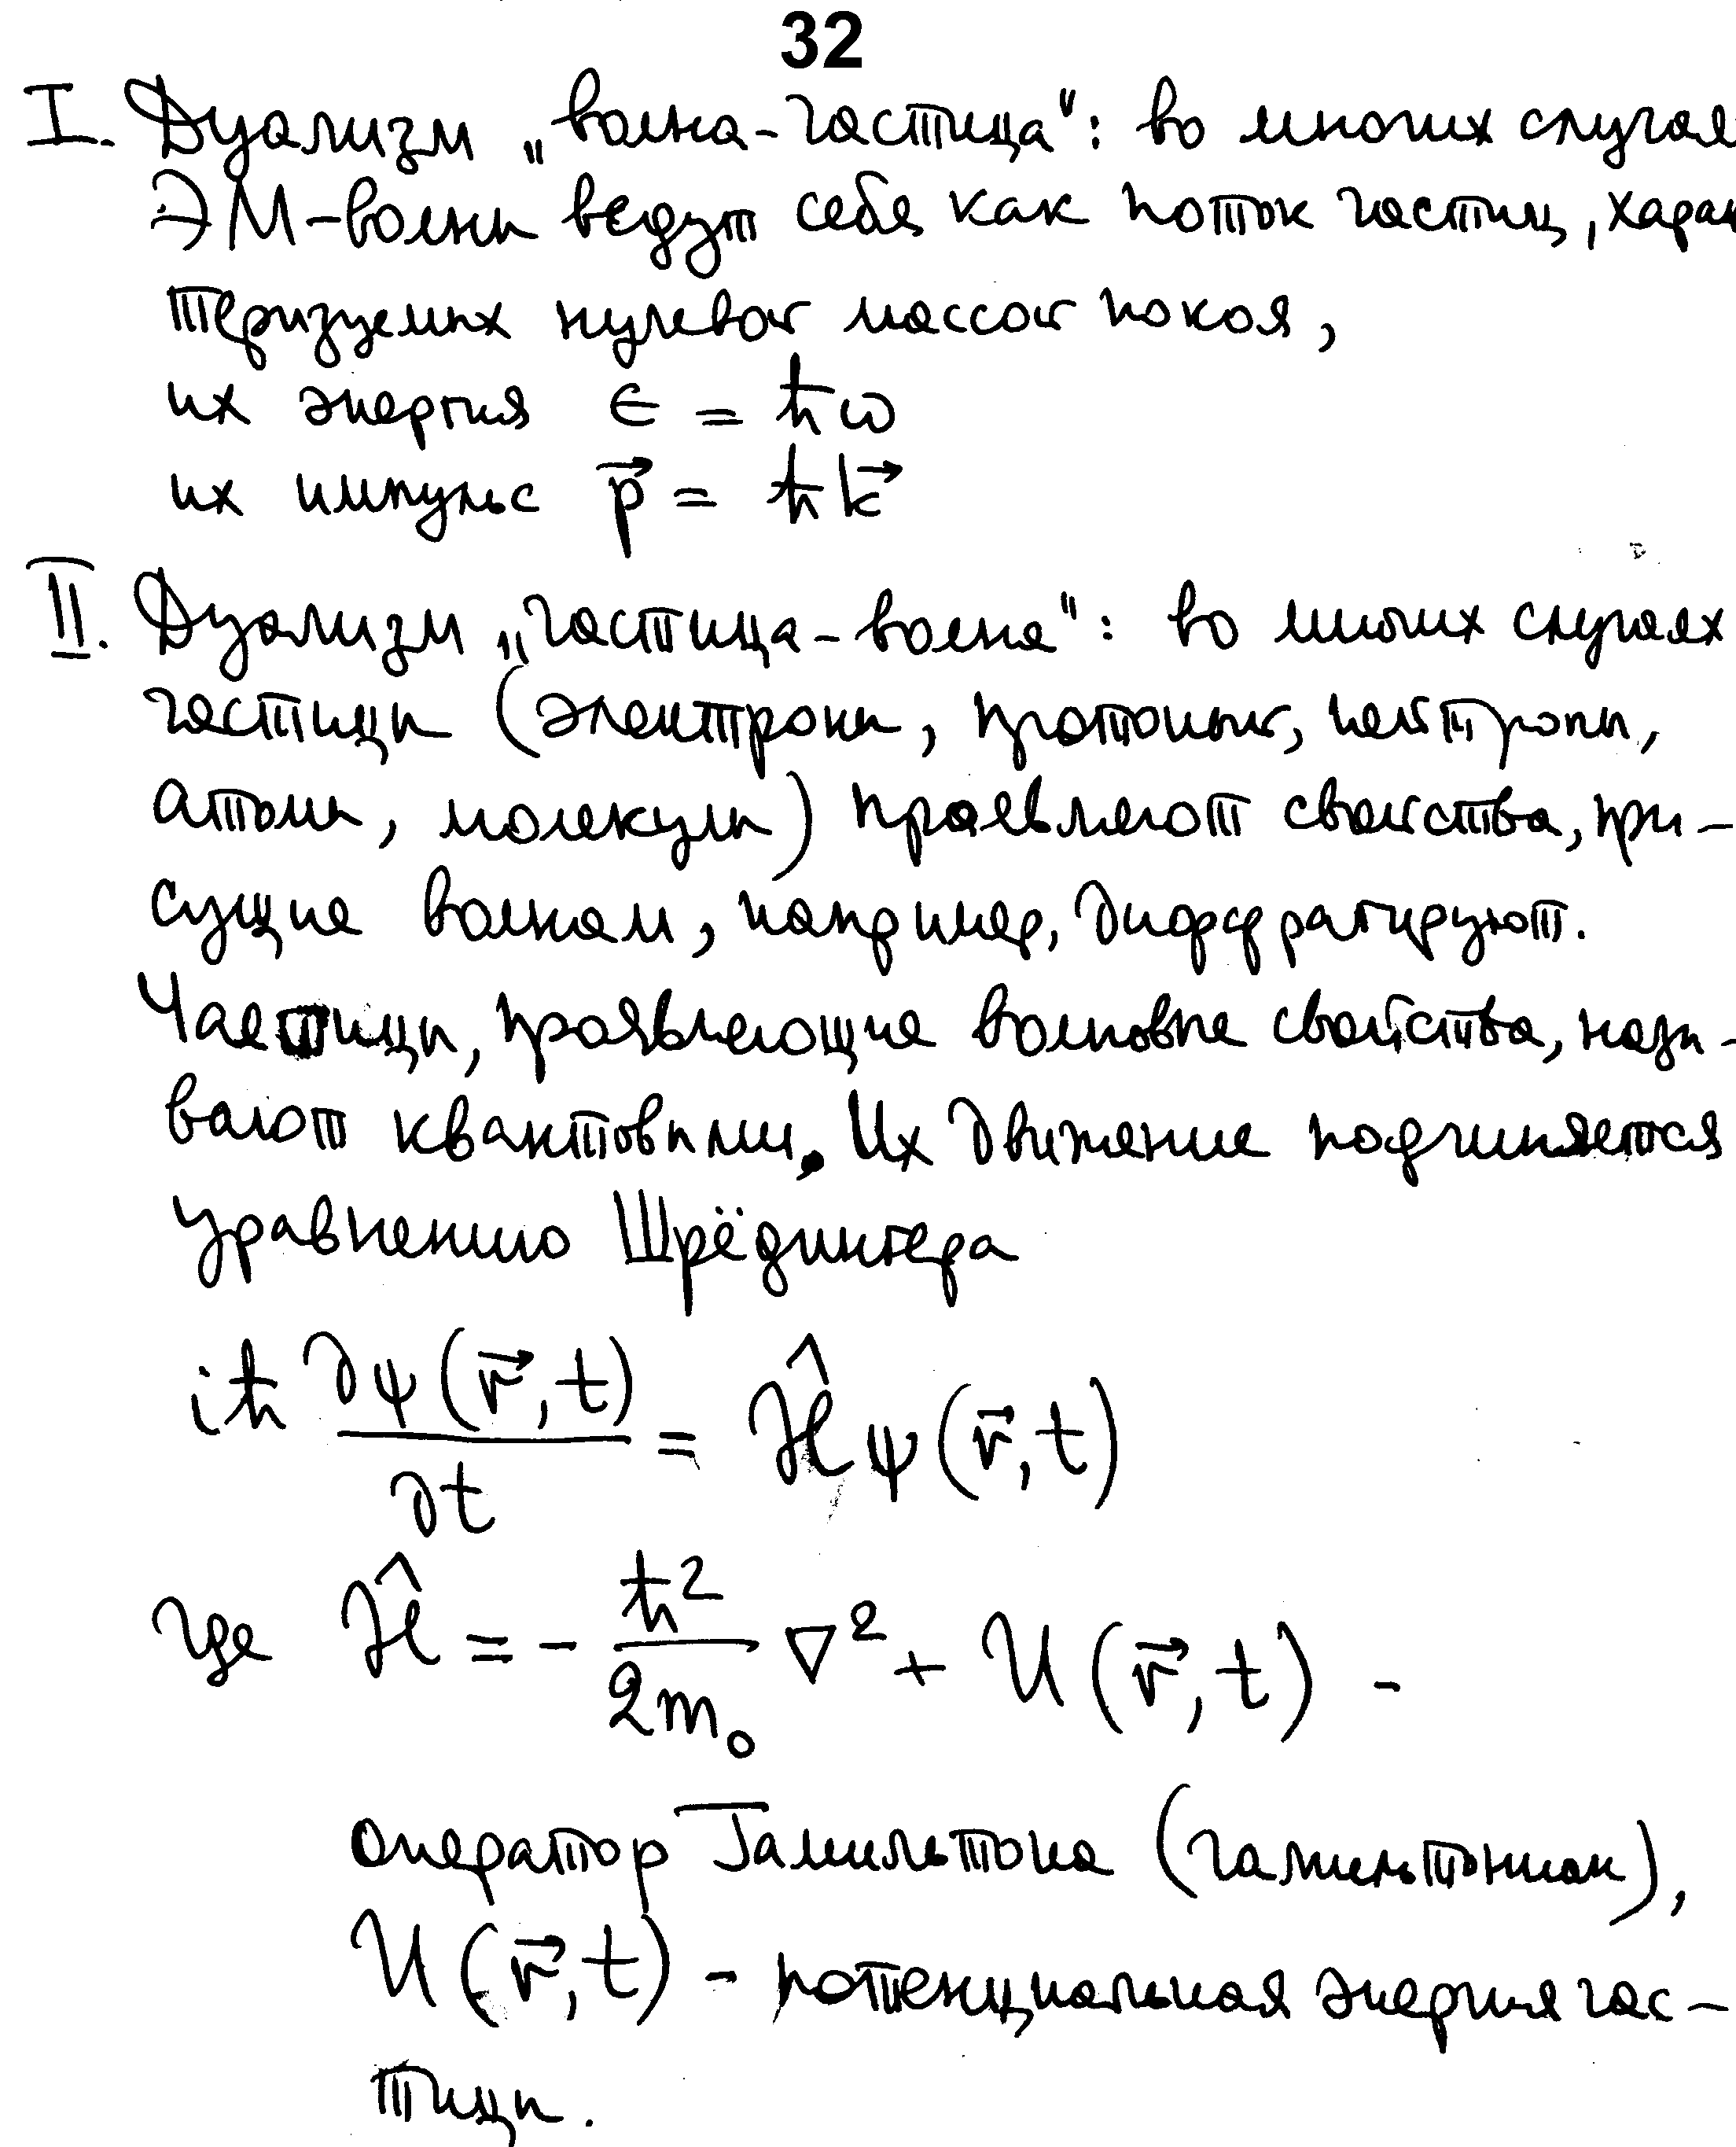 32
I. Дуализм „волна-частица": во многих случая
ЭМ-волны ведут себя как поток частиц, харак
теризуемых нулевой массой покоя,
их энергия ϵ = ħω
их импульс p⃗ = ħk⃗
II. Дуализм „частица-волна": во многих случаях
частицы (электроны, протоны, нейтроны,
атомы, молекулы) проявляют свойства, при-
сущие волнам, например, дифрагируют.
Частицы, проявляющие волновые свойства, назы-
вают квантовыми. Их движение подчиняется
уравнению Шрёдингера
iħ ∂ψ(r⃗,t)/∂t = Ĥψ(r⃗,t)
где Ĥ = -ħ²/2m₀ ∇² + U(r⃗,t) -
оператор Гамильтона (гамильтониан),
U(r⃗,t) - потенциальная энергия час-
тицы.